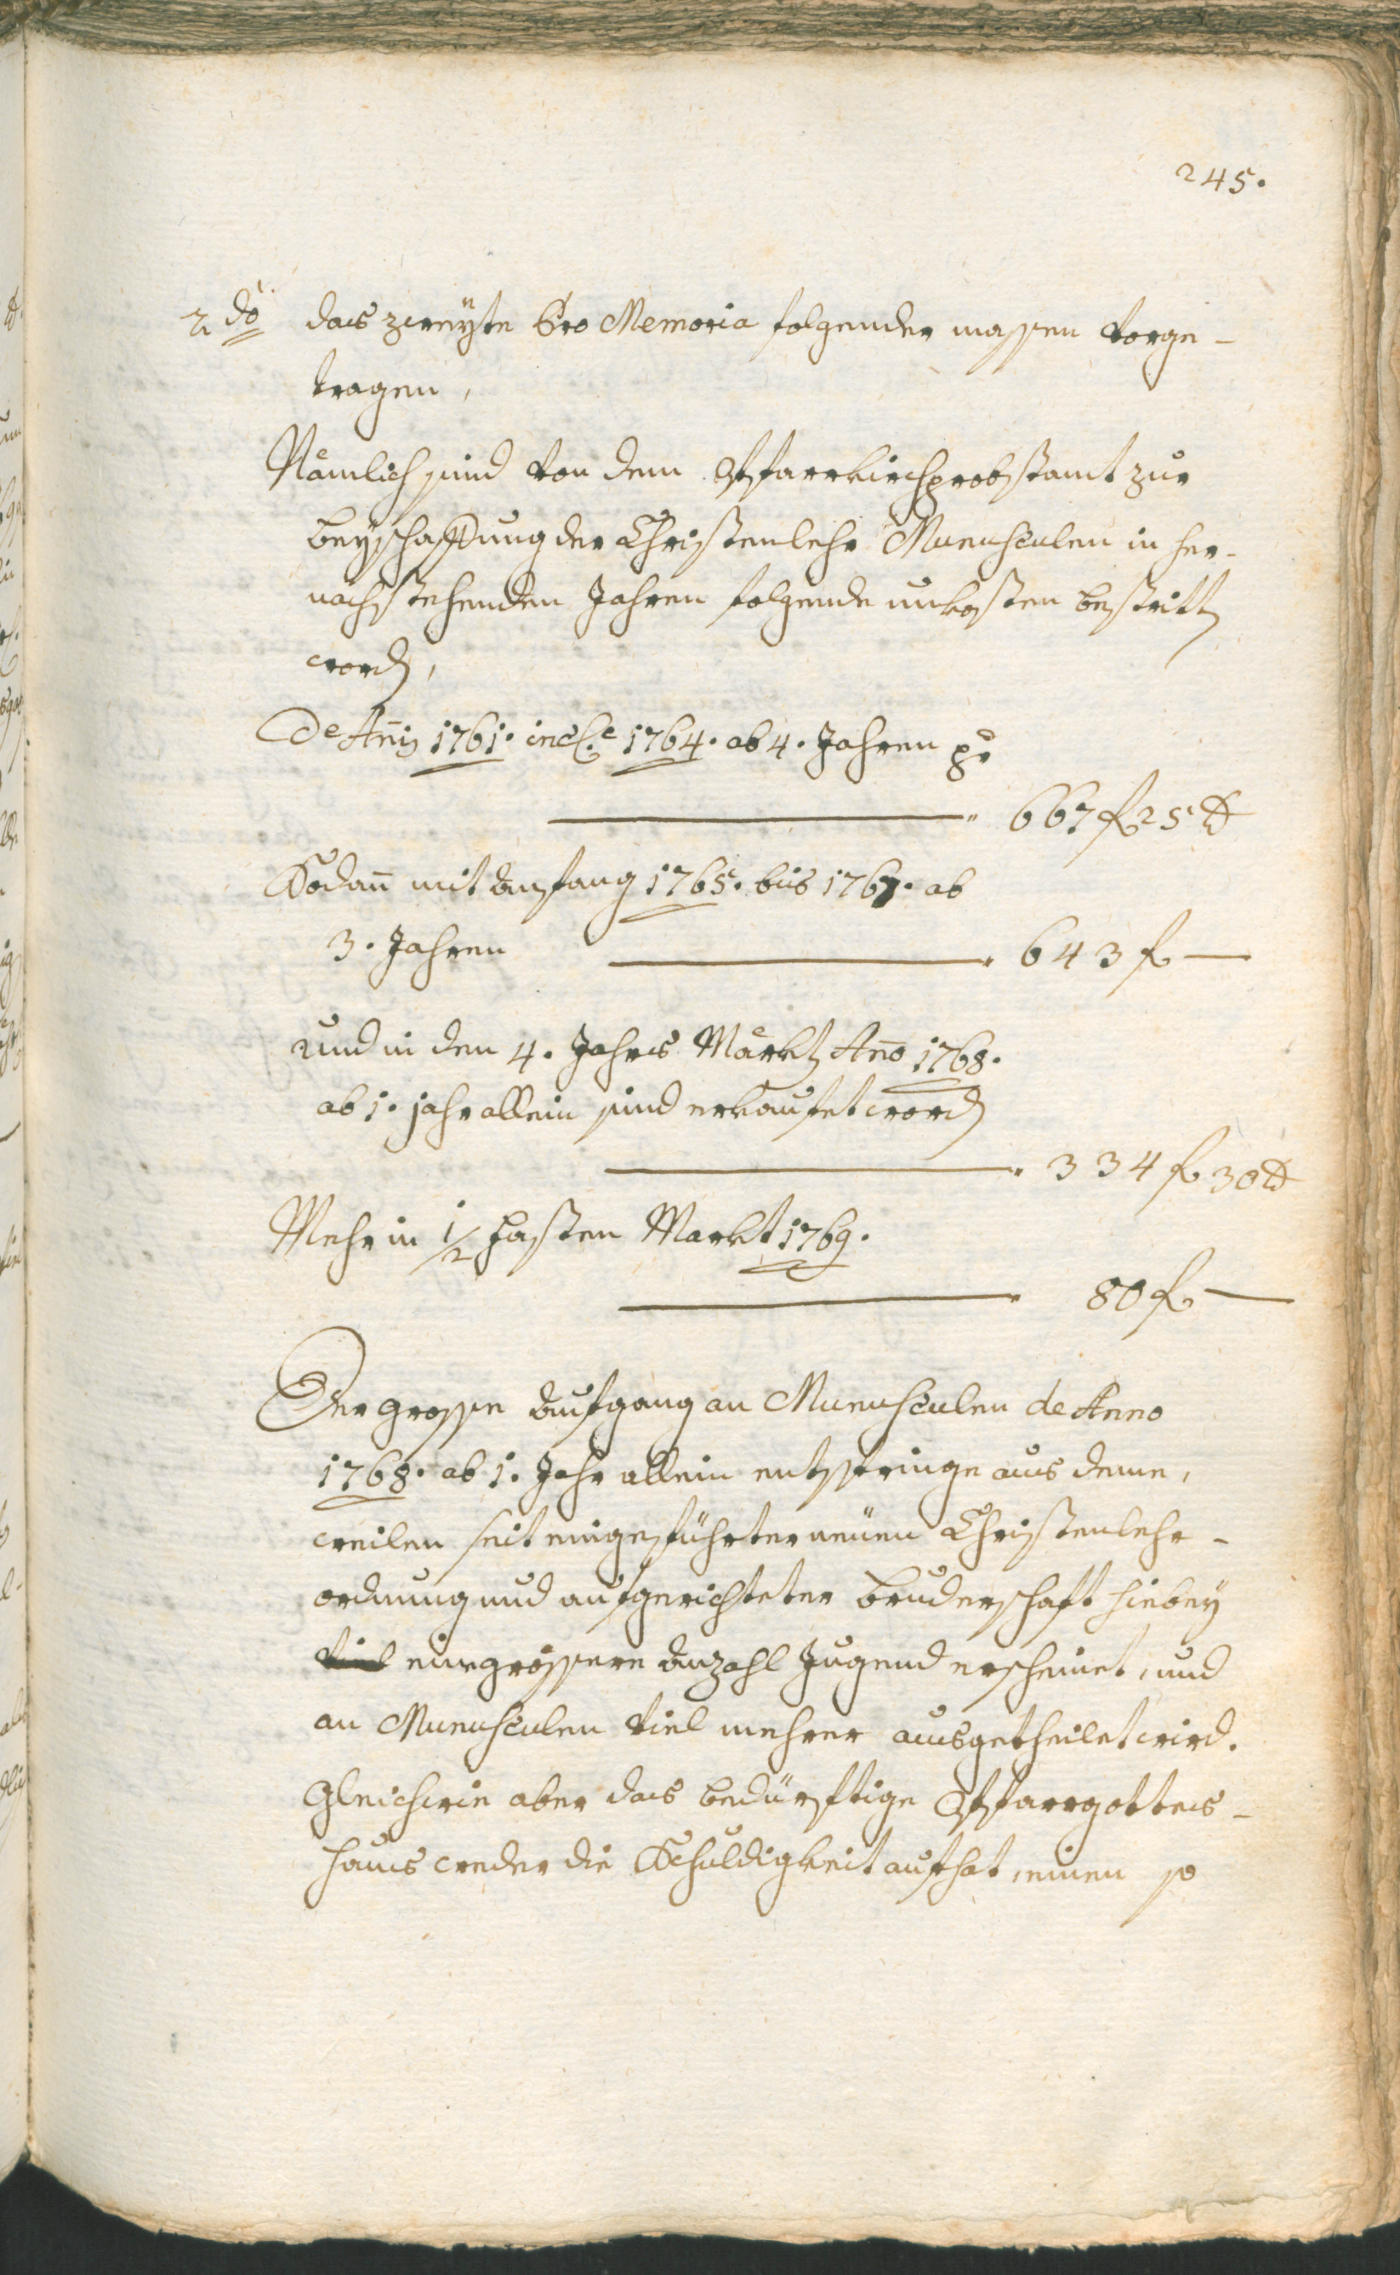 245.
2do das zweyte Pro Memoria folgender massen vorge-
tragen,
Nämlich sind von dem Pfarrkirchprobstamt zur
beyschaffung der Christenlehr Munusculen in her-
nachstehenden Jahren folgende unkosten bestritten
worden,
De Annis 1761. incl.e 1764. ab 4. Jahren pr
667 f 25 x
Sodann mit Anfang 1765. bis 1767. ab
3. Jahren 643 f —
und in den 4. Jahrs Märkten Anno 1768.
ab 1. jahr allein sind erkaufet worden
334 f 30 x
Mehr in 1/2 Fasten Markt 1769.
80 f —
Der grosse Aufgang an Munusculen de Anno
1768. ab 1. Jahr allein entspringe aus deme,
weilen seit eingeführter neuen Christenlehr-
ordnung und aufgerichteter bruderschaft hiebey
viel eine grössere Anzahl Jugend erscheinet, und
an Munusculen viel mehrer ausgetheilet wird.
Gleichwie aber das bedürftige Pfarrgottes-
haus weder die Schuldigkeit auf hat, einen so